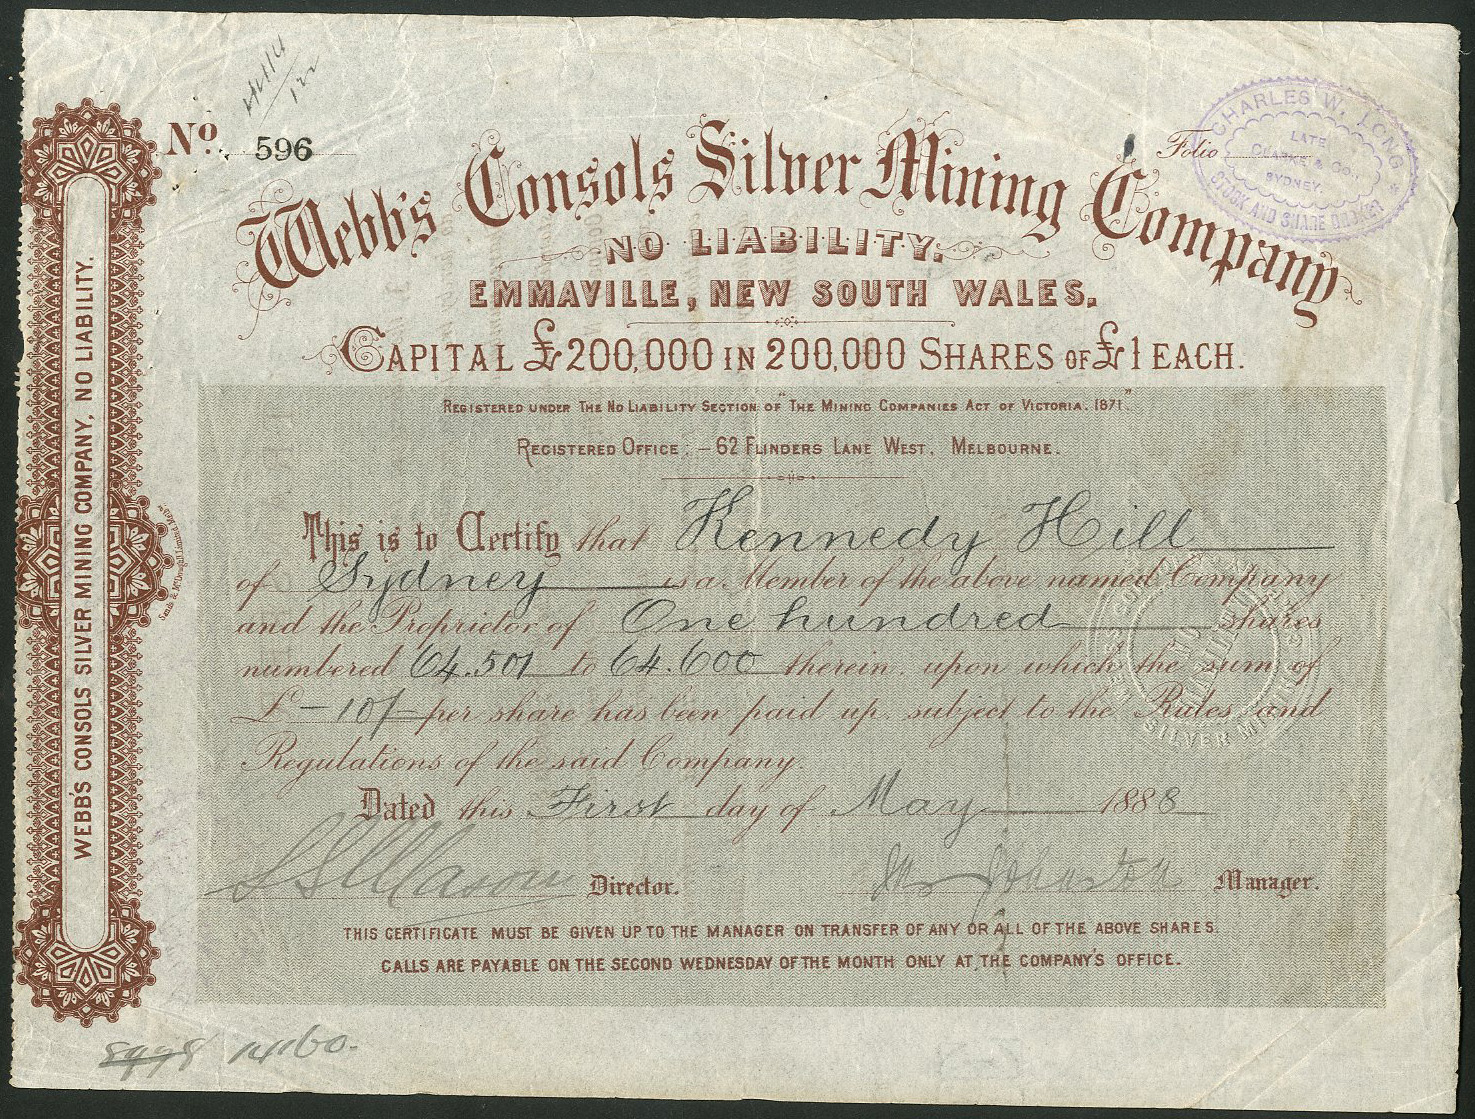 No. 596
Folio
CHARLES W. LONG
LATE
CLARKE & Co.,
SYDNEY.
STOCK AND SHARE BROKER
Webb's Consols Silver Mining Company
NO LIABILITY.
EMMAVILLE, NEW SOUTH WALES.
CAPITAL £200,000 IN 200,000 SHARES OF £1 EACH.
REGISTERED UNDER THE NO LIABILITY SECTION OF "THE MINING COMPANIES ACT OF VICTORIA. 1871."
REGISTERED OFFICE:- 62 FLINDERS LANE WEST, MELBOURNE.
This is to Certify that Kennedy Hill
of Sydney is a Member of the above named Company
and the Proprietor of One hundred shares
numbered 64.501 to 64.600 therein, upon which the sum of
£ - 10/- per share has been paid up, subject to the Rules and
Regulations of the said Company.
Dated this First day of May 1888
Director.
Manager.
THIS CERTIFICATE MUST BE GIVEN UP TO THE MANAGER ON TRANSFER OF ANY OR ALL OF THE ABOVE SHARES.
CALLS ARE PAYABLE ON THE SECOND WEDNESDAY OF THE MONTH ONLY AT THE COMPANY'S OFFICE.
WEBB'S CONSOLS SILVER MINING COMPANY, NO LIABILITY.
SILVER MINING
NO
LIABILITY